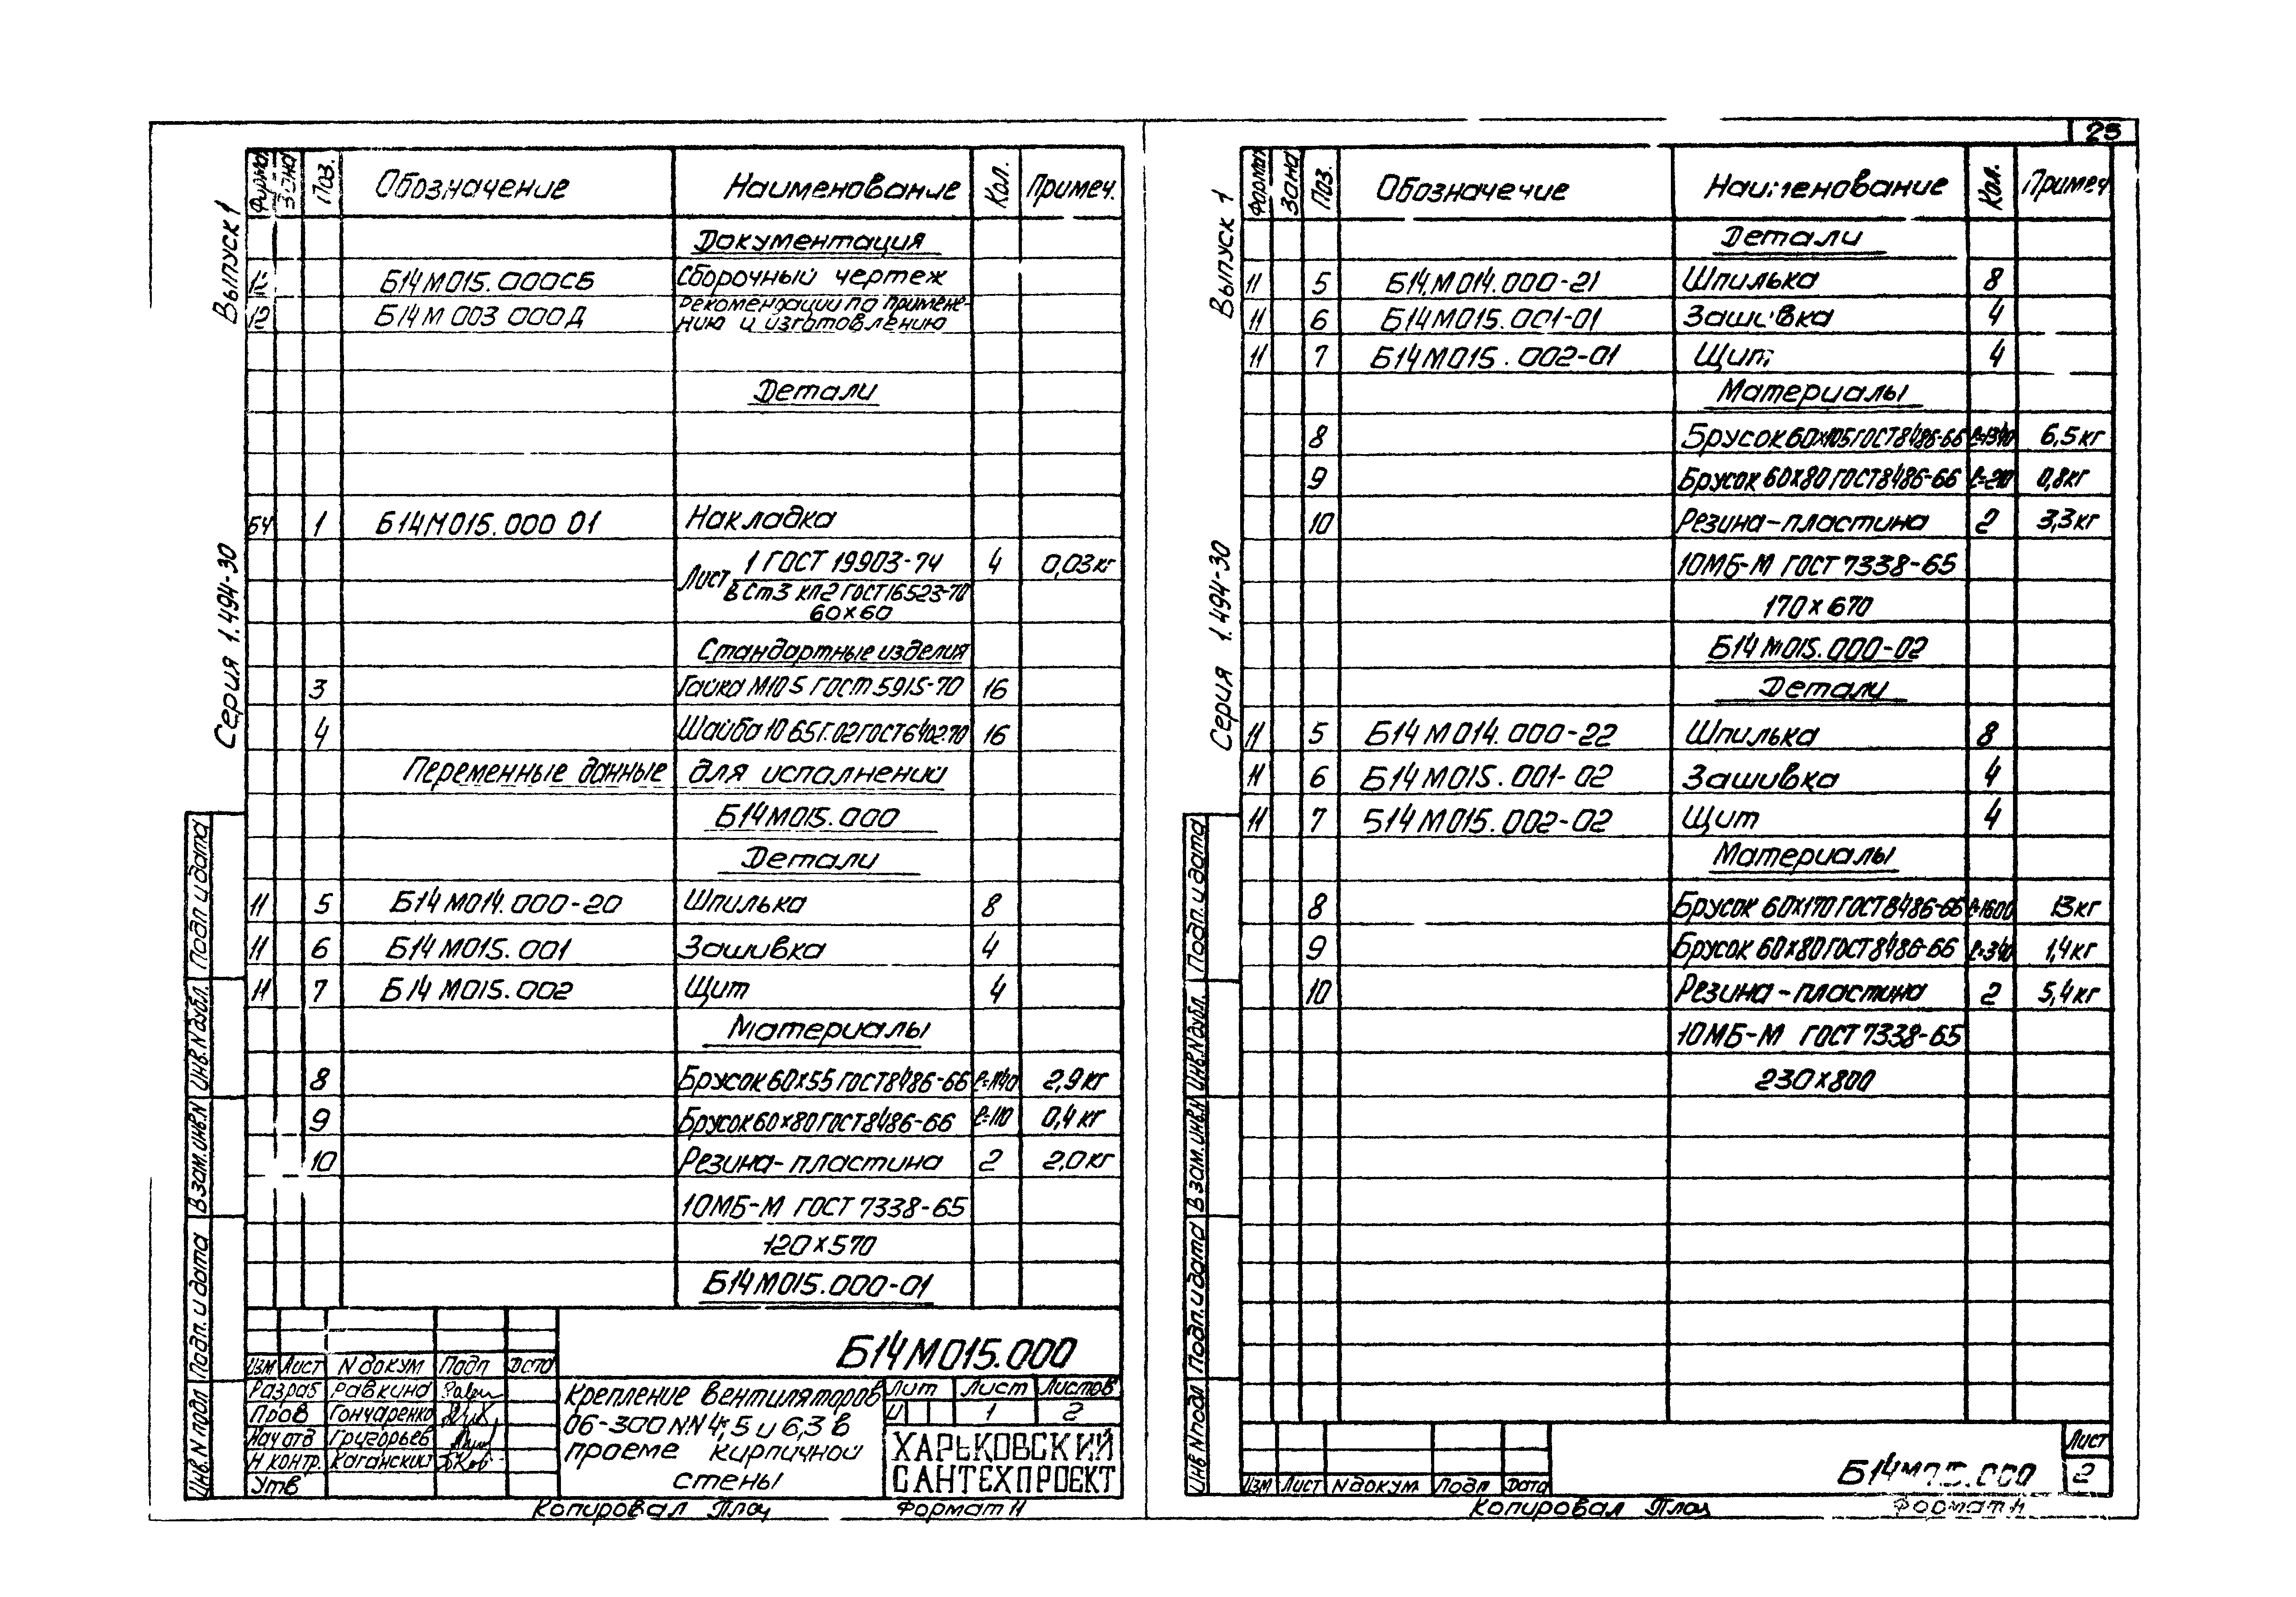 23
Выпуск 1
Серия 1.494-30
Формат Зона Поз. Обозначение Наименование Кол. Примеч.
Документация
12 Б14М015.000СБ Сборочный чертеж
12 Б14М 003 000Д Рекомендации по применe-
нию и изготовлению
Детали
БЧ 1 Б14М015.000 01 Накладка
Лист 1 ГОСТ 19903-74 4 0,03кг
В Ст3 кп2 ГОСТ16523-70
60×60
Стандартные изделия
3 Гайка М10 5 ГОСТ 5915-70 16
4 Шайба 10 65Г.02 ГОСТ6402-70 16
Переменные данные для исполнений
Б14М015.000
Детали
11 5 Б14М014.000-20 Шпилька 8
11 6 Б14М015.001 Зашивка 4
11 7 Б14М015.002 Щит 4
Материалы
8 Брусок 60×55 ГОСТ8486-66 ℓ=1140 2,9кг
9 Брусок 60×80 ГОСТ8486-66 ℓ=110 0,4кг
10 Резина-пластина 2 2,0кг
10МБ-М ГОСТ 7338-65
120×570
Б14М015.000-01
Инв.N подл Подп. и дата Взам.инв.N Инв.N дубл. Подп. и дата
Б14М015.000
Изм Лист N докум Подп Дата
Разраб Равкина
Пров Гончаренко
Нач отд Григорьев
Н контр. Каганский
Утв
Крепление вентиляторов
06-300 NN 4; 5 и 6,3 в
проеме кирпичной
стены
Лит Лист Листов
И 1 2
ХАРЬКОВСКИЙ
САНТЕХПРОЕКТ
Копировал Формат 11
Выпуск 1
Серия 1.494-30
Формат Зона Поз. Обозначение Наименование Кол. Примеч
Детали
11 5 Б14М014.000-21 Шпилька 8
11 6 Б14М015.001-01 Зашивка 4
11 7 Б14М015.002-01 Щит 4
Материалы
8 Брусок 60×105 ГОСТ8486-66 ℓ=1340 6,5кг
9 Брусок 60×80 ГОСТ8486-66 ℓ=210 0,8кг
10 Резина-пластина 2 3,3кг
10МБ-М ГОСТ 7338-65
170×670
Б14М015.000-02
Детали
11 5 Б14М014.000-22 Шпилька 8
11 6 Б14М015.001-02 Зашивка 4
11 7 Б14М015.002-02 Щит 4
Материалы
8 Брусок 60×170 ГОСТ8486-66 ℓ=1600 13кг
9 Брусок 60×80 ГОСТ8486-66 ℓ=340 1,4кг
10 Резина-пластина 2 5,4кг
10МБ-М ГОСТ 7338-65
230×800
Инв.N подл Подп. и дата Взам.инв.N Инв.N дубл. Подп. и дата
Изм Лист N докум Подп Дата
Б14М015.000
Лист
2
Копировал Формат 11